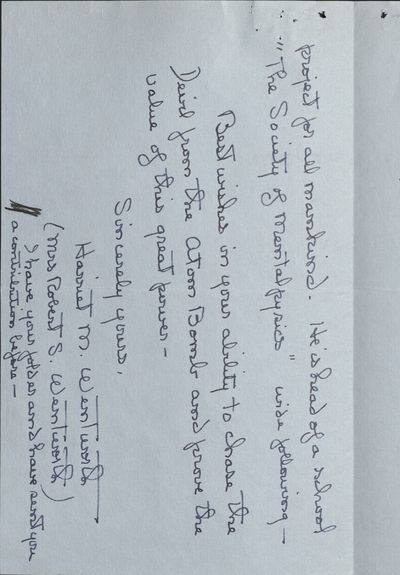 project for all mankind. He is head of a school
"The Society of Mentalphysics" wide following –
Best wishes in your ability to chase the
Devil from the Atom Bomb and prove the
value of this great power –
Sincerely yours,
Harriet M. Wentworth
(Mrs Robert S. Wentworth)
I have your folder and have sent you
a contribution before –